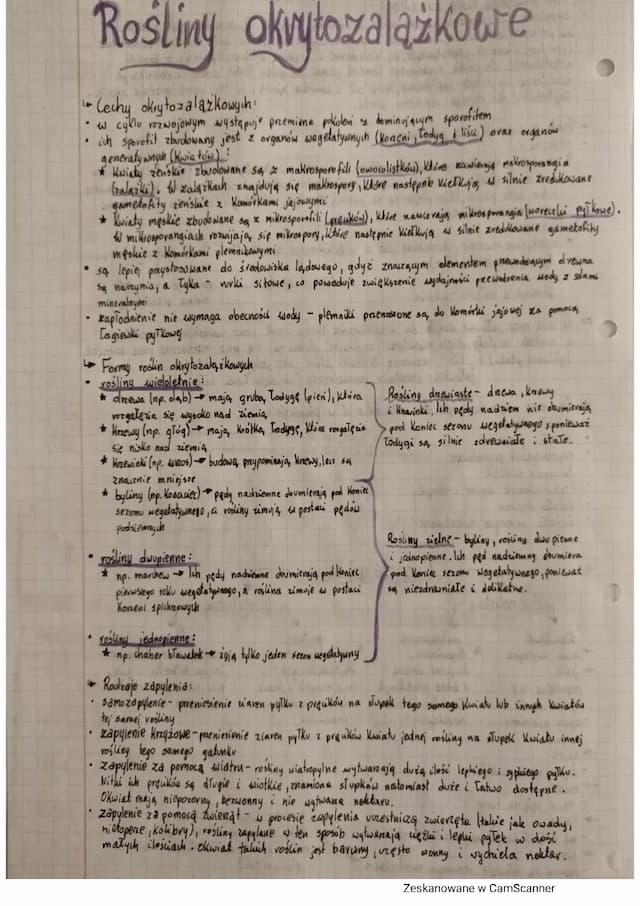 Rośliny okrytozalążkowe
↳ Cechy okrytozalążkowych:
• w cyklu rozwojowym występuje przemiana pokoleń z dominującym sporofitem
• ich sporofit zbudowany jest z organów wegetatywnych (korzeni, łodyg i liści) oraz organów
generatywnych (kwiatów):
★ Kwiaty żeńskie zbudowane są z makrosporofili (owocolistków), które zawierają makrosporangia
(zalążki). W zalążkach znajdują się makrospory, które następnie kiełkują w silnie zredukowane
gametofity żeńskie z komórkami jajowymi
★ Kwiaty męskie zbudowane są z mikrosporofili (pręcików), które zawierają mikrosporangia (woreczki pyłkowe).
W mikrosporangiach rozwijają się mikrospory, które następnie kiełkują w silnie zredukowane gametofity
męskie z komórkami plemnikowymi
• są lepiej przystosowane do środowiska lądowego, gdyż znaczącym elementem przewodzącym drewna
są naczynia, a łyka - rurki sitowe, co powoduje zwiększenie wydajności przewodzenia wody z solami
mineralnymi
• zapłodnienie nie wymaga obecności wody - plemniki przenoszone są do komórki jajowej za pomocą
łagiewki pyłkowej
↳ Formy roślin okrytozalążkowych
• rośliny wieloletnie:
★ drzewa (np. dąb) → mają grubą łodygę (pień), która
rozgałęzia się wysoko nad ziemią
★ krzewy (np. głóg) → mają krótką łodygę, która rozgałęzia
się nisko nad ziemią
★ krzewinki (np. wrzos) → budową przypominają krzewy, lecz są
znacznie mniejsze
★ byliny (np. kosaciec) → pędy nadziemne obumierają pod koniec
sezonu wegetatywnego, a rośliny zimują w postaci pędów
podziemnych
• rośliny dwupienne:
★ np. marchew → Ich pędy nadziemne obumierają pod koniec
pierwszego roku wegetatywnego, a roślina zimuje w postaci
korzeni spichrzowych
• rośliny jednopienne:
★ np. chaber bławatek → żyją tylko jeden sezon wegetatywny
Rośliny drzewiaste - drzewa, krzewy
i krzewinki. Ich pędy nadziem nie obumierają
pod koniec sezonu wegetatywnego, ponieważ
łodygi są silnie zdrewniałe i stałe.
Rośliny zielne - byliny, rośliny dwupienne
i jednopienne. Ich pęd nadziemny obumiera
pod koniec sezonu wegetatywnego, ponieważ
są niezdrewniałe i delikatne.
↳ Rodzaje zapylenia:
• samozapylenie - przeniesienie ziaren pyłku z pręcików na słupek tego samego kwiatu lub innych kwiatów
tej samej rośliny
• zapylenie krzyżowe - przeniesienie ziaren pyłku z pręcików kwiatu jednej rośliny na słupek kwiatu innej
rośliny tego samego gatunku
• zapylenie za pomocą wiatru - rośliny wiatropylne wytwarzają dużą ilość lepkiego i sypkiego pyłku.
Nitki ich pręcików są długie i wiotkie, znamiona słupków natomiast duże i łatwo dostępne.
Okwiat mają niepozorny, bezwonny i nie wytwarza nektaru.
• zapylenie za pomocą zwierząt - w procesie zapylenia uczestniczą zwierzęta (takie jak owady,
nietoperze, kolibry), rośliny zapylane w ten sposób wytwarzają ciężki i lepki pyłek w dość
małych ilościach. Okwiat takich roślin jest barwny, często wonny i wydziela nektar.
Zeskanowane w CamScanner